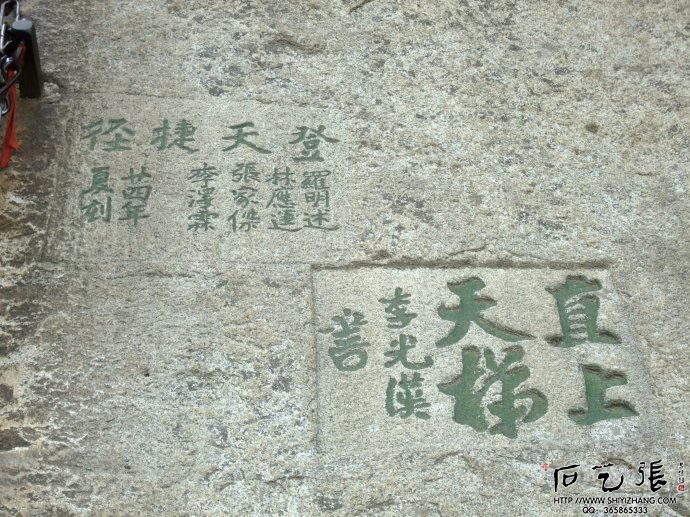 登天捷徑
羅明述
林應運
張家傑
李澤霖
廿四年
夏刻
直上
天梯
李光漢
書
張艺石
HTTP://WWW.SHIYIZHANG.COM
QQ: 365865333